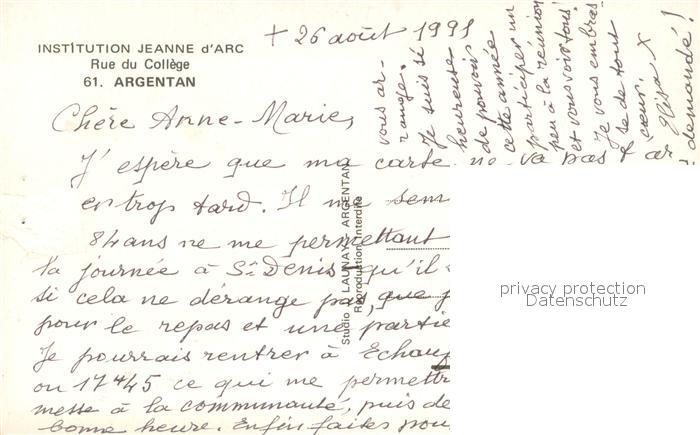 INSTITUTION JEANNE d'ARC
Rue du Collège
61. ARGENTAN
+ 26 août 1991
Chère Anne-Marie,
J'espère que ma carte ne va pas ar
trop tard. Il me sem
84 ans ne me permettant
la journée à St Denis qu'il
si cela ne dérange pas, que
pour le repas et une partie
Je pourrais rentrer à Echau
ou 17h45 ce qui me permettr
messe à la communauté, puis de
bonne heure. Enfin faites pou
vous ar-
range.
Je suis si
heureuse
de pouvoir
cette année
participer un
peu à la réunion
et vous voir tous!
Je vous embras-
se de tout
cœur.
demande!
Studio LAUNAY - ARGENTAN
Reproduction Interdite
privacy protection
Datenschutz